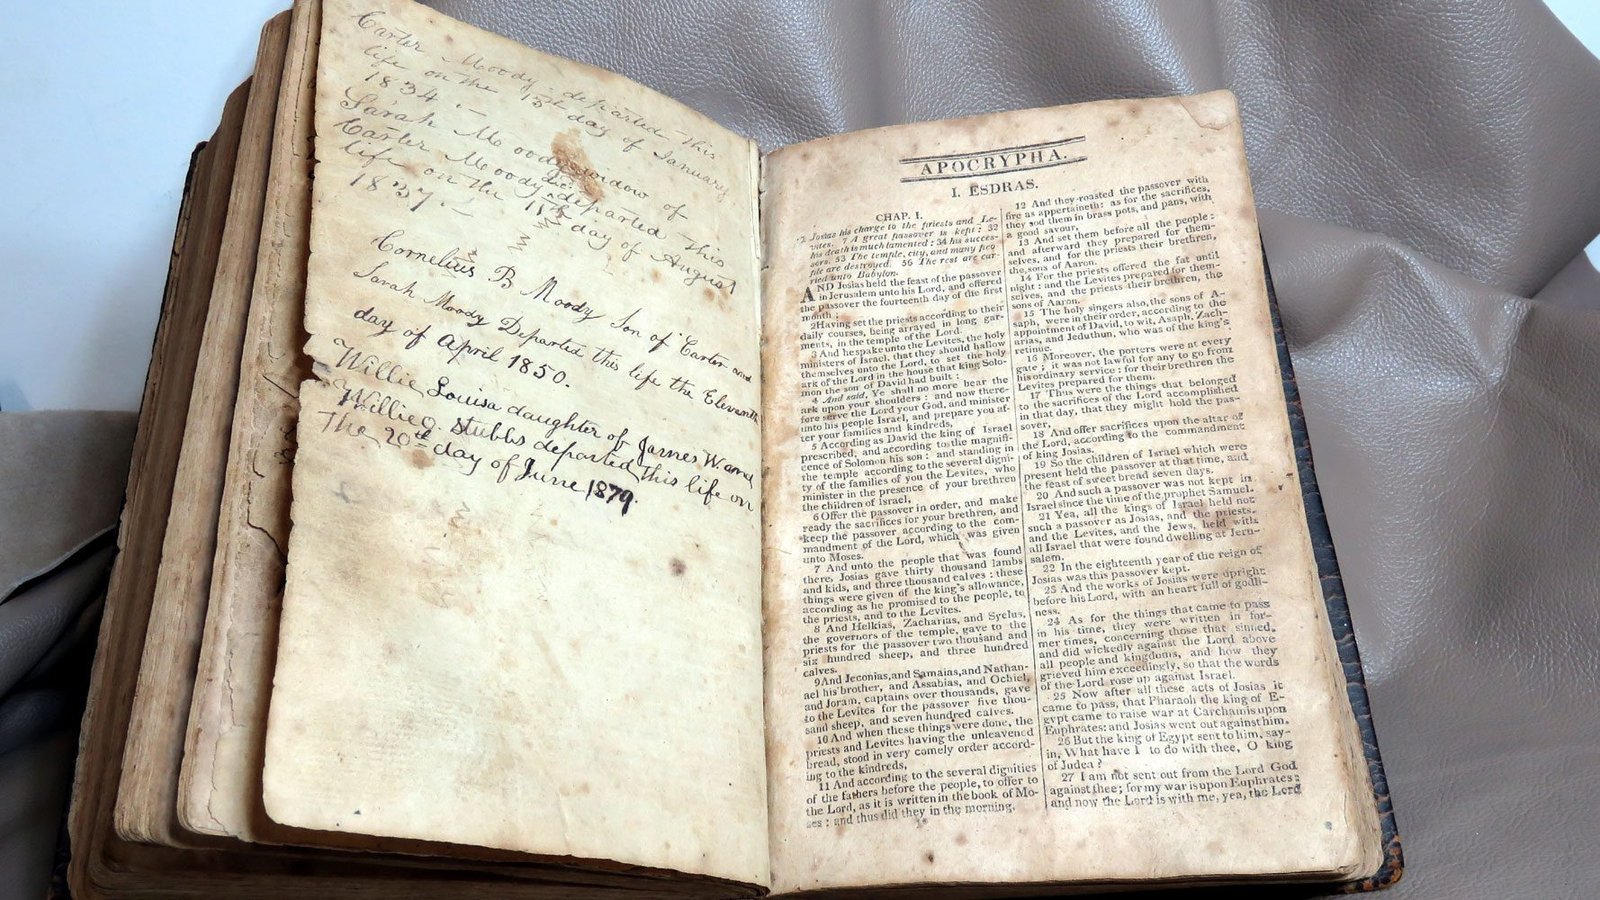 Carter Moody departed this
life on the 13th day of January
1834.
Sarah Moody widow of
Carter Moody dec departed this
life on the 11th day of August
1837.
Cornelius B Moody Son of Carter and
Sarah Moody Departed this life the Eleventh
day of April 1850.
Willie Louisa daughter of James W and
Willie J. Stubbs departed this life on
The 20th day of June 1879.
APOCRYPHA.
I. ESDRAS.
CHAP. I.
Josias his charge to the priests and Le-
vites. 7 A great passover is kept: 32
his death is much lamented: 34 his succes-
sors. 53 The temple, city, and many peo
ple are destroyed. 56 The rest are car-
ried unto Babylon.
AND Josias held the feast of the passover
in Jerusalem unto his Lord, and offered
the passover the fourteenth day of the first
month;
2 Having set the priests according to their
daily courses, being arrayed in long gar-
ments, in the temple of the Lord.
3 And he spake unto the Levites, the holy
ministers of Israel, that they should hallow
themselves unto the Lord, to set the holy
ark of the Lord in the house that king Solo-
mon the son of David had built:
4 And said, Ye shall no more bear the
ark upon your shoulders: and now there-
fore serve the Lord your God, and minister
unto his people Israel, and prepare you af-
ter your families and kindreds,
5 According as David the king of Israel
prescribed, and according to the magnifi-
cence of Solomon his son: and standing in
the temple according to the several digni-
ty of the families of you the Levites, who
minister in the presence of your brethren
the children of Israel,
6 Offer the passover in order, and make
ready the sacrifices for your brethren, and
keep the passover according to the com-
mandment of the Lord, which was given
unto Moses.
7 And unto the people that was found
there, Josias gave thirty thousand lambs
and kids, and three thousand calves: these
things were given of the king's allowance,
according as he promised to the people, to
the priests, and to the Levites.
8 And Helkias, Zacharias, and Syelus,
the governors of the temple, gave to the
priests for the passover two thousand and
six hundred sheep, and three hundred
calves.
9 And Jeconias, and Samaias, and Nathan-
ael his brother, and Assabias, and Ochiel,
and Joram, captains over thousands, gave
to the Levites for the passover five thou-
sand sheep, and seven hundred calves.
10 And when these things were done, the
priests and Levites having the unleavened
bread, stood in very comely order accord-
ing to the kindreds,
11 And according to the several dignities
of the fathers before the people, to offer to
the Lord, as it is written in the book of Mo-
ses: and thus did they in the morning.
12 And they roasted the passover with
fire as appertaineth: as for the sacrifices,
they sod them in brass pots, and pans, with
a good savour,
13 And set them before all the people:
and afterward they prepared for them-
selves, and for the priests their brethren,
the sons of Aaron.
14 For the priests offered the fat until
night: and the Levites prepared for them-
selves, and the priests their brethren, the
sons of Aaron.
15 The holy singers also, the sons of A-
saph, were in their order, according to the
appointment of David, to wit, Asaph, Zach-
arias, and Jeduthun, who was of the king's
retinue.
16 Moreover, the porters were at every
gate; it was not lawful for any to go from
his ordinary service: for their brethren the
Levites prepared for them.
17 Thus were the things that belonged
to the sacrifices of the Lord accomplished
in that day, that they might hold the pas-
sover,
18 And offer sacrifices upon the altar of
the Lord, according to the commandment
of king Josias.
19 So the children of Israel which were
present held the passover at that time, and
the feast of sweet bread seven days.
20 And such a passover was not kept in
Israel since the time of the prophet Samuel.
21 Yea, all the kings of Israel held not
such a passover as Josias, and the priests,
and the Levites, and the Jews, held with
all Israel that were found dwelling at Jeru-
salem.
22 In the eighteenth year of the reign of
Josias was this passover kept.
23 And the works of Josias were upright
before his Lord, with an heart full of godli-
ness.
24 As for the things that came to pass
in his time, they were written in for-
mer times, concerning those that sinned,
and did wickedly against the Lord above
all people and kingdoms, and how they
grieved him exceedingly, so that the words
of the Lord rose up against Israel.
25 Now after all these acts of Josias it
came to pass, that Pharaoh the king of E-
gypt came to raise war at Carchamis upon
Euphrates: and Josias went out against him.
26 But the king of Egypt sent to him, say-
in, What have I to do with thee, O king
of Judea?
27 I am not sent out from the Lord God
against thee; for my war is upon Euphrates:
and now the Lord is with me, yea, the Lord